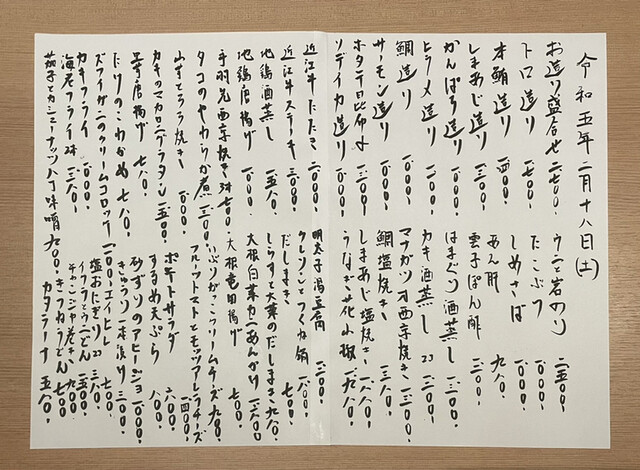 令和五年二月十八日(土)
お造り盛合せ 二七〇〇
トロ造り 二五〇〇
本鮪造り 一四〇〇
しまあじ造り 一三〇〇
かんぱち造り 一〇〇〇
ヒラメ造り 一〇〇〇
鯛造り 一〇〇〇
サーモン造り 九〇〇
ホタテ昆布〆 一〇〇〇
ソデイカ造り 一〇〇〇
近江牛たたき 二〇〇〇
近江牛ステーキ 三〇〇〇
地鶏酒蒸し 一五八〇
地鶏唐揚げ 一二〇〇
手羽先西京焼き 3本 七〇〇
タコのやわらか煮 一二〇〇
山芋とろろ焼き 一〇〇〇
カキのマカロニグラタン 一五〇〇
芋唐揚げ 七八〇
たけのこわかめ 七八〇
ズワイガニのクリームコロッケ 一二〇〇
カキフライ 一〇〇〇
海老フライ 2本 一三八〇
茄子とカシューナッツ八丁味噌 九〇〇
ウニと岩のり 二五〇〇
たこぶつ 一〇〇〇
しめさば 一〇〇〇
あん肝 九八〇
雲子ぽん酢 一三〇〇
はまぐり酒蒸し 一三〇〇
カキ酒蒸し 2コ 一二〇〇
マナガツオ西京焼き 一三〇〇
鯛塩焼き 一三八〇
しまあじ塩焼き 一八八〇
うなぎ花山椒 一九八〇
明太子湯豆腐 一二〇〇
クレソンとつくね鍋 一八〇〇
だしまき 七〇〇
しらすと大葉のだしまき 九八〇
大根白菜カニあんかけ 一二八〇
大根竜田揚げ 七〇〇
いぶりがっこクリームチーズ 九〇〇
フルーツトマトとモッツァレラチーズ 一四〇〇
ポテトサラダ 八〇〇
するめ天ぷら 六〇〇
砂ずりのアヒージョ 一〇〇〇
きゅうり一本漬け 三〇〇
エイヒレ 七〇〇
塩おにぎり 2コ 三八〇
イクラとろうどん 一五〇〇
きつねうどん 七〇〇
カタラーナ 五八〇